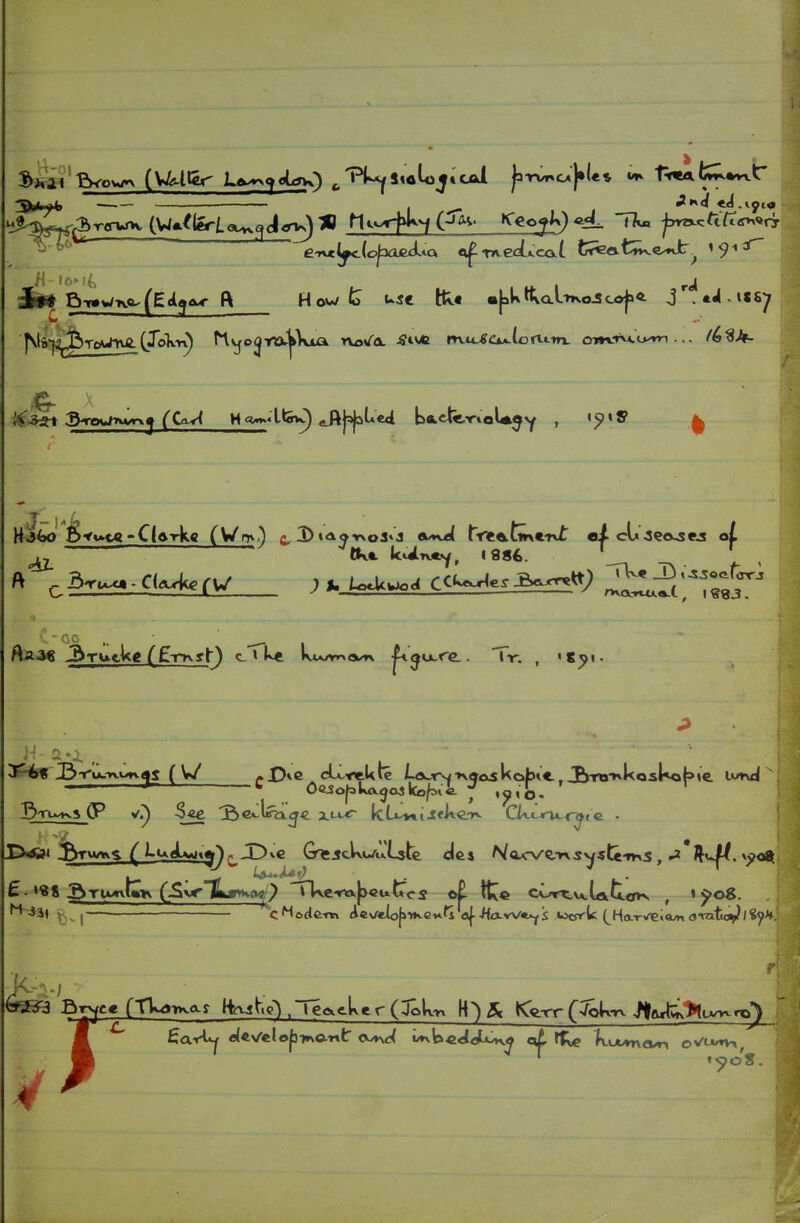 H-01
Brown (Walter Langdon) Physiological principles in treatment
2nd ed. 1910
Brown (Walter Langdon) & Murphy (Jas. Keogh) ed. The practitioner's
encyclopaedia of medical treatment, 1915
H-10*16
Browne (Edgar A How to use the ophthalmoscope 3rd ed. 1887
Browne (John) Myographia nova sive musculorum omnium ... 1684
Browning (Carl Hamilton) Applied bacteriology, 1918
J-146
H360 Bruce-Clarke (Wm.) Diagnosis and treatment of diseases of
the kidney, 1886.
Bruce-Clarke (W ) & Lockwood (Charles Barrett) The Dissectors
manual, 1883.
C-00
Aa36 Brücke (Ernst) The human figure. Tr., 1891.
H-2*2
Brünings (W Die direkte Laryngoskopie, Bronkoskopie und
Oesophagoskopie, 1910.
Bruns (P v.) See Beiträge zur klinischen Chirurgie.
Bruns (Ludwig) Die Geschwülste des Nervensystems, 2* Aufl. 1908
E.188 Brunton (Sir Lauder) Therapeutics of the circulation, 1908.
M 331 Modern developments of Harvey's work (Harveian oration) 1894.
K-2./
Bryce (Thomas Hastie), Teacher (John H) & Kerr (John Martin Munro)
Early development and imbedding of the human ovum,
1908.